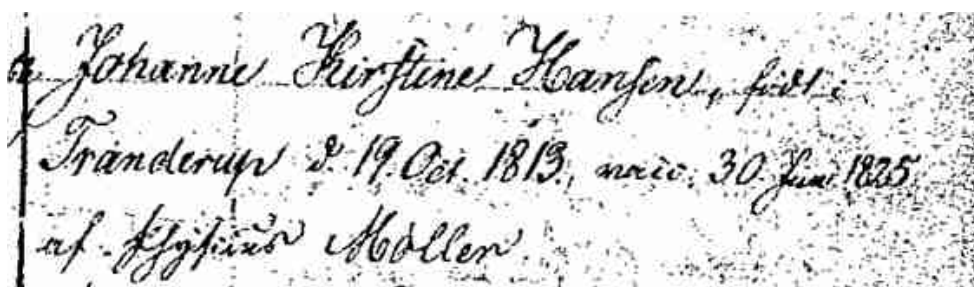 Johanne Kirstine Hansen, født i
Tranderup d. 19. Oct. 1813, vacc. 30. Juni 1825
af Physicus Möller